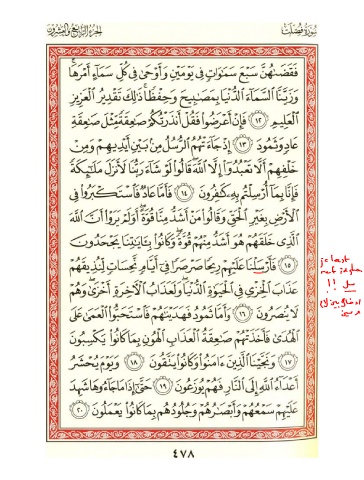 سُورَةُ فُصِّلَتْ
الجُزْءُ الرَّابِعُ وَالعِشْرُونَ
فَقَضَىٰهُنَّ سَبْعَ سَمَٰوَاتٍ فِى يَوْمَيْنِ وَأَوْحَىٰ فِى كُلِّ سَمَآءٍ أَمْرَهَا
وَزَيَّنَّا ٱلسَّمَآءَ ٱلدُّنْيَا بِمَصَٰبِيحَ وَحِفْظًا ذَٰلِكَ تَقْدِيرُ ٱلْعَزِيزِ
ٱلْعَلِيمِ ١٢ فَإِنْ أَعْرَضُوا۟ فَقُلْ أَنذَرْتُكُمْ صَٰعِقَةً مِّثْلَ صَٰعِقَةِ
عَادٍ وَثَمُودَ ١٣ إِذْ جَآءَتْهُمُ ٱلرُّسُلُ مِنۢ بَيْنِ أَيْدِيهِمْ وَمِنْ
خَلْفِهِمْ أَلَّا تَعْبُدُوٓا۟ إِلَّا ٱللَّهَ قَالُوا۟ لَوْ شَآءَ رَبُّنَا لَأَنزَلَ مَلَٰٓئِكَةً
فَإِنَّا بِمَآ أُرْسِلْتُم بِهِۦ كَٰفِرُونَ ١٤ فَأَمَّا عَادٌ فَٱسْتَكْبَرُوا۟ فِى
ٱلْأَرْضِ بِغَيْرِ ٱلْحَقِّ وَقَالُوا۟ مَنْ أَشَدُّ مِنَّا قُوَّةً أَوَلَمْ يَرَوْا۟ أَنَّ ٱللَّهَ
ٱلَّذِى خَلَقَهُمْ هُوَ أَشَدُّ مِنْهُمْ قُوَّةً وَكَانُوا۟ بِـَٔايَٰتِنَا يَجْحَدُونَ
١٥ فَأَرْسَلْنَا عَلَيْهِمْ رِيحًا صَرْصَرًا فِىٓ أَيَّامٍ نَّحِسَاتٍ لِّنُذِيقَهُمْ
عَذَابَ ٱلْخِزْىِ فِى ٱلْحَيَوٰةِ ٱلدُّنْيَا وَلَعَذَابُ ٱلْءَاخِرَةِ أَخْزَىٰ وَهُمْ
لَا يُنصَرُونَ ١٦ وَأَمَّا ثَمُودُ فَهَدَيْنَٰهُمْ فَٱسْتَحَبُّوا۟ ٱلْعَمَىٰ عَلَى
ٱلْهُدَىٰ فَأَخَذَتْهُمْ صَٰعِقَةُ ٱلْعَذَابِ ٱلْهُونِ بِمَا كَانُوا۟ يَكْسِبُونَ
١٧ وَنَجَّيْنَا ٱلَّذِينَ ءَامَنُوا۟ وَكَانُوا۟ يَتَّقُونَ ١٨ وَيَوْمَ يُحْشَرُ
أَعْدَآءُ ٱللَّهِ إِلَى ٱلنَّارِ فَهُمْ يُوزَعُونَ ١٩ حَتَّىٰٓ إِذَا مَا جَآءُوهَا شَهِدَ
عَلَيْهِمْ سَمْعُهُمْ وَأَبْصَٰرُهُمْ وَجُلُودُهُم بِمَا كَانُوا۟ يَعْمَلُونَ ٢٠
٤٧٨